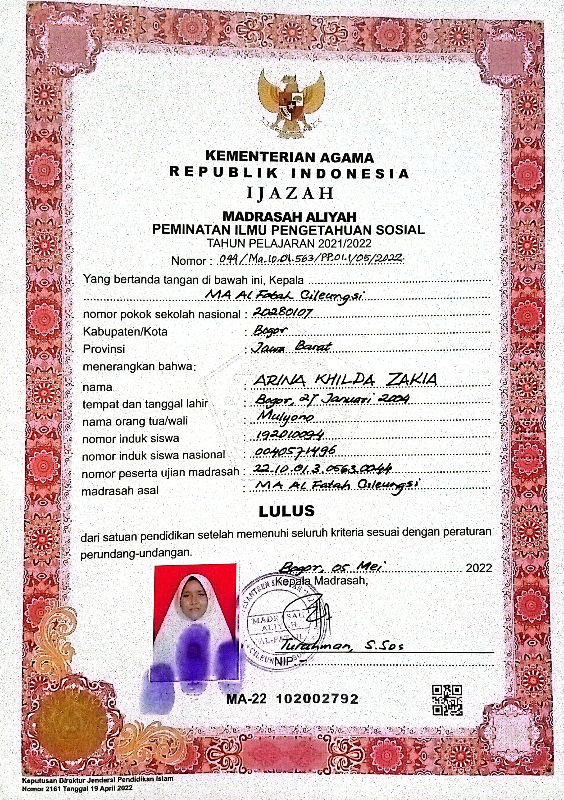 KEMENTERIAN AGAMA
REPUBLIK INDONESIA
IJAZAH
MADRASAH ALIYAH
PEMINATAN ILMU PENGETAHUAN SOSIAL
TAHUN PELAJARAN 2021/2022
Nomor : 044/Ma.10.01.563/PP.01.1/05/2022
Yang bertanda tangan di bawah ini, Kepala
MA Al Fatah Cileungsi
nomor pokok sekolah nasional : 20280107
Kabupaten/Kota : Bogor
Provinsi : Jawa Barat
menerangkan bahwa:
nama : ARINA KHILDA ZAKIA
tempat dan tanggal lahir : Bogor, 27 Januari 2004
nama orang tua/wali : Mulyono
nomor induk siswa : 192010094
nomor induk siswa nasional : 0040571496
nomor peserta ujian madrasah : 22.10.01.3.0563.0044
madrasah asal : MA Al Fatah Cileungsi
LULUS
dari satuan pendidikan setelah memenuhi seluruh kriteria sesuai dengan peraturan
perundang-undangan.
Bogor, 05 Mei 2022
Kepala Madrasah,
Turahman, S.Sos
NIP -
MA-22 102002792
Keputusan Direktur Jenderal Pendidikan Islam
Nomor 2161 Tanggal 19 April 2022